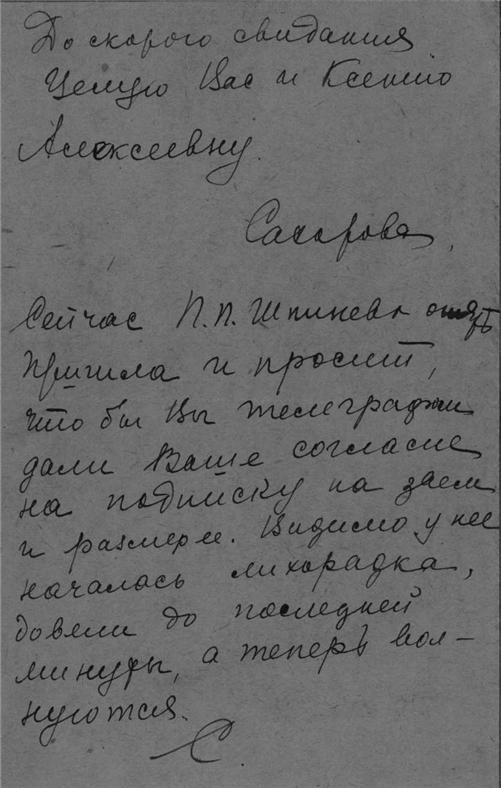 До скорого свидания
Целую Вас и Ксению
Алексеевну.
Сахарова.
Сейчас П.П. Шпинева опять
пришла и просит,
что бы Вы телеграфом
дали Ваше согласие
на подписку на заем
и размере. Видимо у нее
началась лихорадка,
довели до последней
минуты, а теперь вол-
нуются.
С